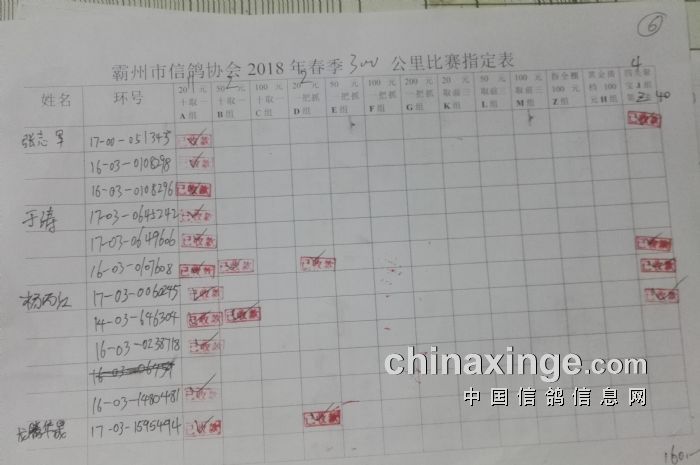 6
霸州市信鸽协会 2018 年春季 300 公里比赛指定表
姓名 环号 20 元十取一 A 组 50 十取一 B 组 100 十取一 C 组 20 一把抓 D 组 50 一把抓 E 组 100 一把抓 F 组 200 一把抓 G 组 20 元取前三 K 组 50 元取前三 L 组 100 元取前三 M 组 100 元 Z 组 100 元 H 组 J 组 4 40
张志军 17-00-051343 已收款 已收款
16-03-0108298 已收款
16-03-0108296 已收款
于涛 17-03-0645242 已收款
17-03-0649606 已收款 已收款
16-03-0107608 已收款 已收款 已收款 已收款
杨丙红 17-03-0060245 已收款 已收款
14-03-646304 已收款 已收款
16-03-0238718 已收款
16-03-
16-03-1480481 已收款
17-03-1595494 已收款 已收款
chinaxinge.com
中国信鸽信息网
160.-